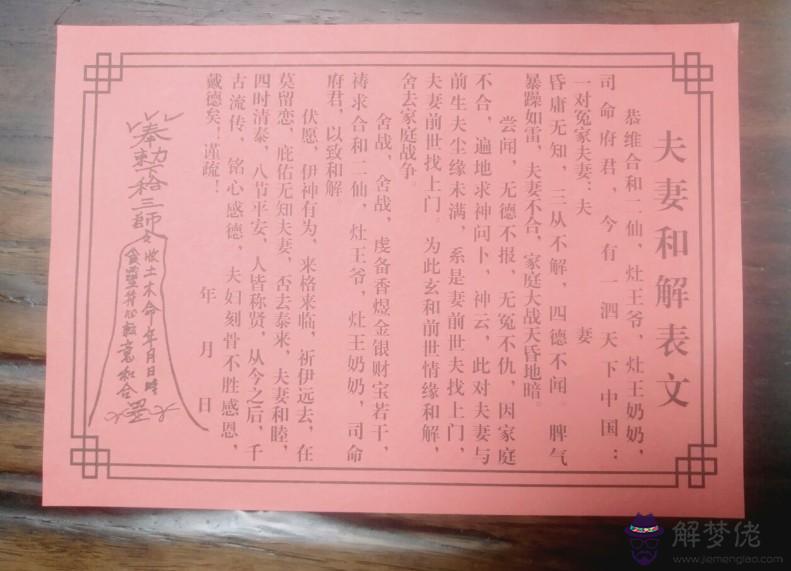 夫妻和解表文
恭维合和二仙，灶王爷，灶王奶奶，
司命府君，今有一泗天下中国：
一对冤家夫妻：夫 妻
昏庸无知，三从不解，四德不闻。脾气
暴躁如雷，夫妻不合，家庭大战天昏地暗。
尝闻，无德不报，无冤不仇，因家庭
不合，遍地求神问卜，神云，此对夫妻与
前生夫尘缘未满，系是妻前世夫找上门，
夫妻前世找上门。为此玄和前世情缘和解，
舍去家庭战争。
舍战，舍战，虔备香煜金银财宝若干，
祷求合和二仙，灶王爷，灶王奶奶，司命
府君，以致和解。
伏愿，伊神有为，来格来临，祈伊远去，在
莫留恋，庇佑无知夫妻，否去泰来，夫妻和睦，
四时清泰，八节平安，人皆称贤，从今之后，千
古流传，铭心感德，夫妇刻骨不胜感恩，
戴德矣！谨疏！
年 月 日
奉勅 三師
收土木命年月日時
和合
解梦佬
www.jiemenglao.com